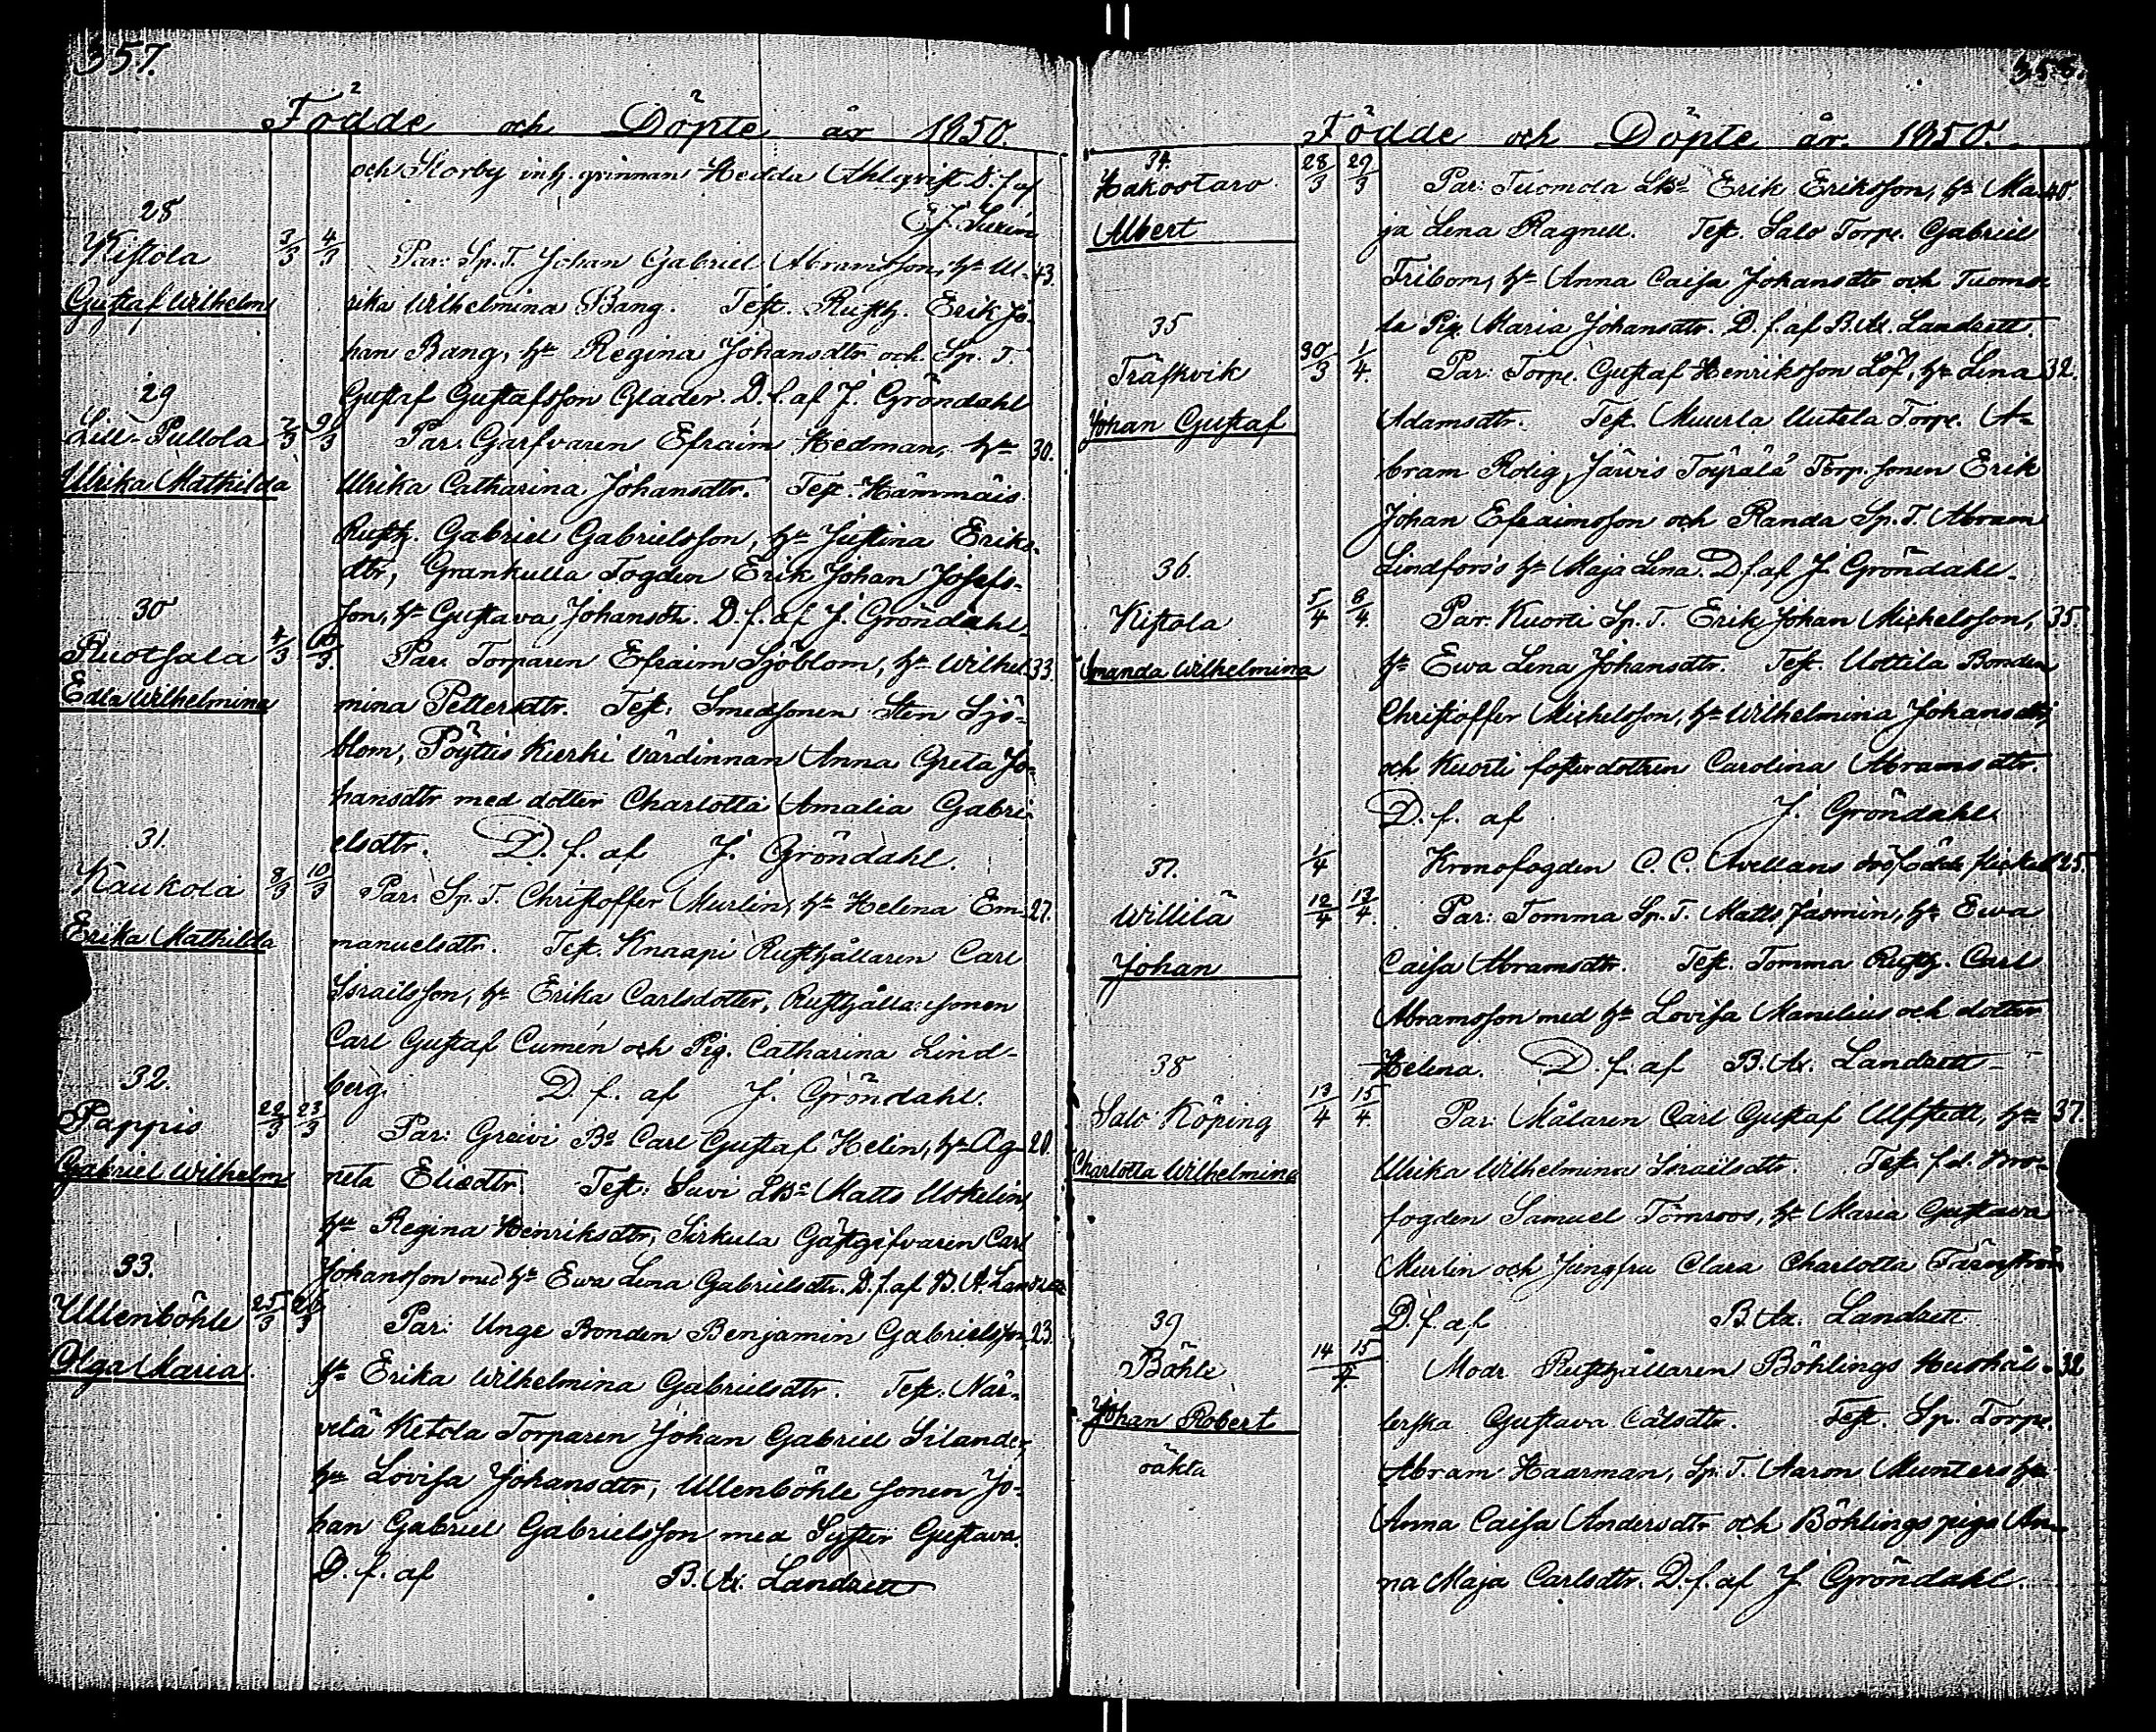 357.
Födde och Döpte år 1850.
och Storby inh. qvinnan Hedda Ahlqvist D. f. af
28
Kistola 3/3 4/3 Par: Sp. T. Johan Gabriel Abramsson, h: Ul- 43.
Gustaf Wilhelm rika Wilhelmina Bang. Test. Rusth. Erik Jo-
han Bang, h: Regina Johansdtr och Sp. T.
29 Gustaf Gustafsson Glader. D. f. af J. Gröndahl
Lill-Pullola 7/3 9/3 Par. Garfvaren Efraim Hedman, h: 30.
Ulrika Mathilda Ulrika Catharina Johansdtr. Test. Hämmäis
Rusth. Gabriel Gabrielsson, h: Justina Eriks-
dtr, Grankulla Fogden Erik Johan Josefs-
30 son, h: Gustava Johansdtr. D. f. af J. Gröndahl.
Ruotsala 4/3 10/3 Par. Torparen Efraim Sjöblom, h: Wilhel- 33.
Edla Wilhelmina mina Pettersdtr. Test: Smedsonen Sten Sjö-
blom, Pöytis Kierki värdinnan Anna Greta Jo-
hansdtr med dotter Charlotta Amalia Gabri-
31. elsdtr. D. f. af J. Gröndahl.
Kaukola 8/3 10/3 Par. Sp. T. Christoffer Murlin, h: Helena Em- 27.
Erika Mathilda manuelsdtr. Test. Knaapi Rusthållaren Carl
Israelsson, h: Erika Carlsdotter, Rusthålla: sonen
Carl Gustaf Cumén och Pig. Catharina Lind-
32. berg. D. f. af J. Gröndahl.
Pappis 22/3 23/3 Par: Greivi B: Carl Gustaf Helin, h: Ag- 20.
Gabriel Wilhelm neta Eliedtr. Test: Suvi LB: Matts
h: Regina Henriksdtr, Sirkula Gästgifvaren Carl
33. Johansson med h: Ewa Lena Gabrielsdtr. D. f. af B. A. Landzett
Ullenböhle 25/3 26/3 Par: Unge Bonden Benjamin Gabrielsson, 23.
Olga Maria. h: Erika Wilhelmina Gabrielsdtr. Test: När-
velä Ketola Torparen Johan Gabriel Silander,
h: Lovisa Johansdtr, Ullenböhle sonen Jo-
han Gabriel Gabrielsson med Syster Gustava.
D. f. af B. Ax. Landzett
Födde och Döpte år 1850.
34.
Hakostaro 28/3 29/3 Par: Tuomola LB: Erik Eriksson, h: Ma- 40.
Albert ja Lena Ragnell. Test. Salo Torp. Gabriel
Fribom, h: Anna Caisa Johansdtr och Tuomo-
35 la Pig. Maria Johansdtr. D. f. af B. Ax. Landzett.
Träskvik 30/3 1/4. Par: Torp. Gustaf Henriksson Löf, h: Lena 32.
Johan Gustaf Adamsdtr. Test. Muurla Uutela Torp. A-
bram Rolig, Järvis Töyrälä Torp. sonen Erik
Johan Efraimsson och Randa Sp. T. Abram
36. Lindfors's h: Maja Lena. D. f. af J. Gröndahl.
Kistola 5/4 8/4. Par. Kuorti Sp. T. Erik Johan Michelsson, 35.
Amanda Wilhelmina h: Ewa Lena Johansdtr. Test. Uottila Bonden
Christoffer Michelsson, h: Wilhelmina Johansdtr
och Kuorti fosterdottren Carolina Abramsdtr.
D. f. af J. Gröndahl.
37. 1/4 Kronofogden C. C. Avellans 25.
Willilä 12/4 13/4. Par: Tomma Sp. T. Matts Jasmin, h: Ewa
Johan Caisa Abramsdtr. Test. Tomma Rusth. Carl
Abramsson med h: Lovisa Manelius och dotter
38 Helena. D. f. af B. Ax. Landzett
Salo Köping 13/4 15/4. Par: Målaren Carl Gustaf Ulfstedt, h: 37.
Charlotta Wilhelmina Ulrika Wilhelmina Israelsdtr. Test. f. d. Bro-
fogden Samuel Törnroos, h: Maria Gustava
Murlin och Jungfru Clara Charlotta
39 D. f. af B. Ax. Landzett
Böhle 14 15/4. Modr. Rusthållaren Böhlings Hushål- 32
Johan Robert lerska Gustava Calsdtr. Test. Sp. Torp.
oäkta Abram Haarman, Sp. T. Aaron Munters h:
Anna Caisa Andersdtr och Böhlings piga An-
na Maja Carlsdtr. D. f. af J. Gröndahl.